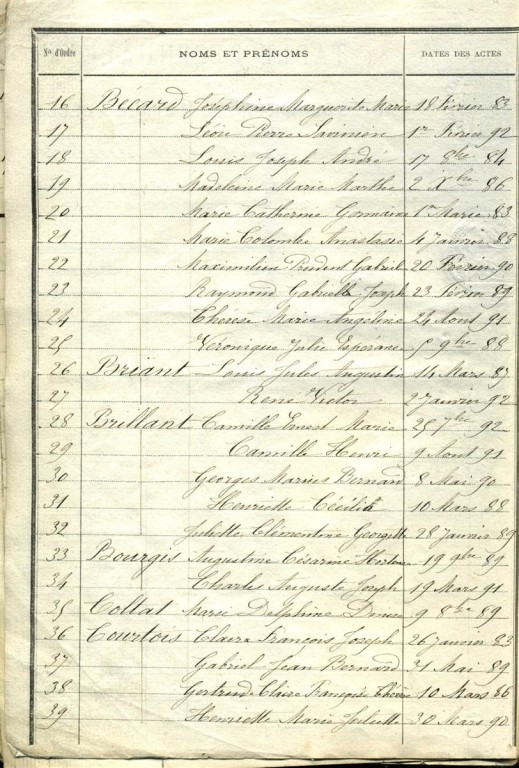 Nos d'Ordre NOMS ET PRÉNOMS DATES DES ACTES
16 Bécard Joséphine Marguerite Marie 18 Février 83
17 Léon Pierre 1er Février 92
18 Louis Joseph André 17 8bre 84
19 Madeleine Marie Marthe 2 Xbre 86
20 Marie Catherine Germaine 83
21 Marie Colombe Anastasie 4 Janvier 88
22 Maximilien Prudent Gabriel 20 Février 90
23 Raymond Gabrielle Joseph 23 Février 89
24 Thérèse Marie Angeline 24 Aout 91
25 Véronique Julie Espérance 5 9bre 88
26 Briant Louis Jules Augustin 14 Mars 87
27 René Victor 2 Janvier 92
28 Brillant Camille Ernest Marie 25 7bre 92
29 Camille Henri 9 Aout 91
30 Georges Marius Bernard 8 Mai 90
31 Henriette Cécilia 10 Mars 88
32 Juliette Clémentine Georgette 28 Janvier 89
33 Bourgis Augustine Césarine 19 9bre 89
34 Charles Auguste Joseph 19 Mars 91
35 Collat Marie Delphine 9 8bre 89
36 Courtois Claire François Joseph 26 Janvier 83
37 Gabriel Jean Bernard 31 Mai 89
38 Gertrude Claire Françoise 10 Mars 86
39 Henriette Marie Juliette 30 Mars 90